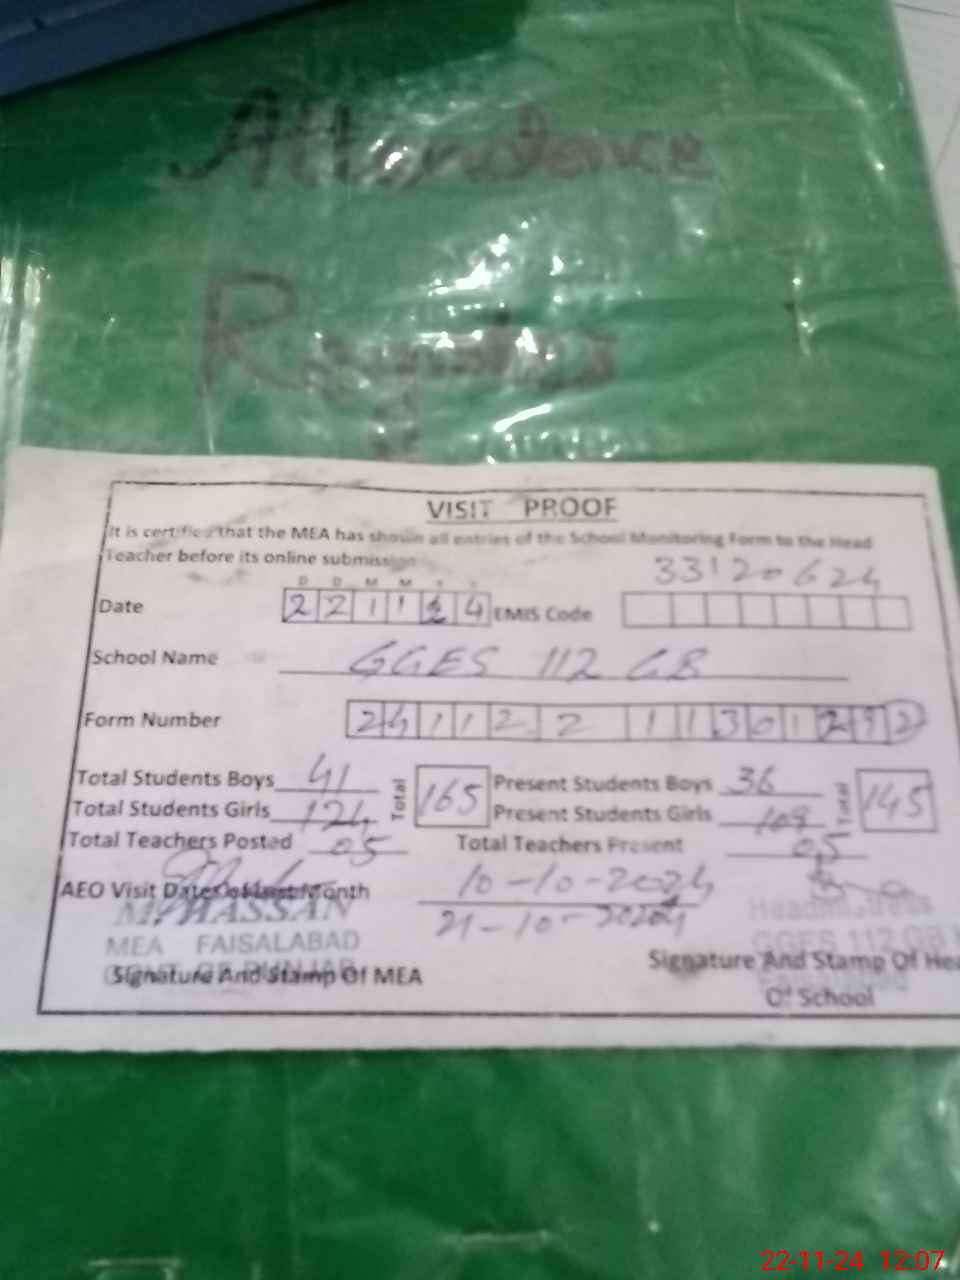 Attendance
Register
VISIT PROOF
It is certified that the MEA has shown all entries of the School Monitoring Form to the Head
Teacher before its online submission
33120624
D D M M Y Y
Date 2 2 1 1 2 4 EMIS Code
School Name GGES 112 GB
Form Number
Total Students Boys 41 Total 165 Present Students Boys 36 Total 145
Total Students Girls 124 Present Students Girls 109
Total Teachers Posted 05 Total Teachers Present 05
AEO Visit Dates of Last Month 10-10-2024
21-10-2024
HASSAN
MEA FAISALABAD
Headmistress
GGES 112 GB
Signature And Stamp Of MEA
Signature And Stamp Of Hea
Of School
22-11-24 12:07